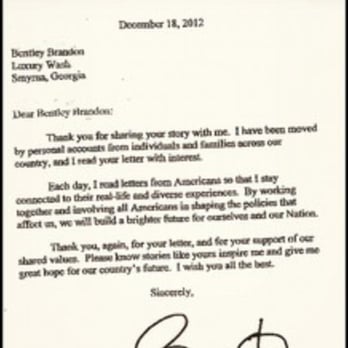 December 18, 2012
Bentley Brandon
Luxury Wash
Smyrna, Georgia
Dear Bentley Brandon:
Thank you for sharing your story with me. I have been moved
by personal accounts from individuals and families across our
country, and I read your letter with interest.
Each day, I read letters from Americans so that I stay
connected to their real-life and diverse experiences. By working
together and involving all Americans in shaping the policies that
affect us, we will build a brighter future for ourselves and our Nation.
Thank you, again, for your letter, and for your support of our
shared values. Please know stories like yours inspire me and give me
great hope for our country's future. I wish you all the best.
Sincerely,